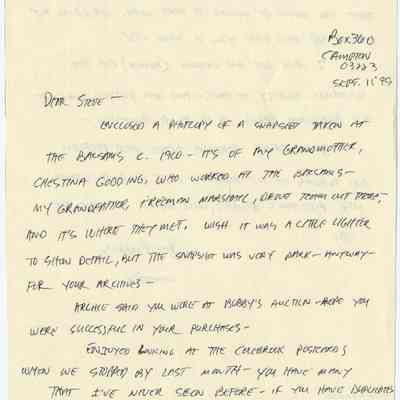 Box 360
CAMPTON
03223
SEPT. 11 '99
DEAR STEVE —
ENCLOSED A PHOTCOPY OF A SNAPSHOT TAKEN AT
THE BALSAMS C. 1900 - IT'S OF MY GRANDMOTHER,
CHESTINA GOODING, WHO WORKED AT THE BALSAMS -
MY GRANDFATHER, FREEMAN MARSHALL, DROVE TEAM OUT THERE,
AND IT'S WHERE THEY MET. WISH IT WAS A LITTLE LIGHTER
TO SHOW DETAIL, BUT THE SNAPSHOT WAS VERY DARK - ANYWAY -
FOR YOUR ARCHIVES -
ARCHIE SAID YOU WERE AT BUBBY'S AUCTION - HOPE YOU
WERE SUCCESSFUL IN YOUR PURCHASES -
ENJOYED LOOKING AT THE COLEBROOK POSTCARDS
WHEN WE STOPPED BY LAST MONTH - YOU HAVE MANY
THAT I'VE NEVER SEEN BEFORE - IF YOU HAVE DUPLICATES